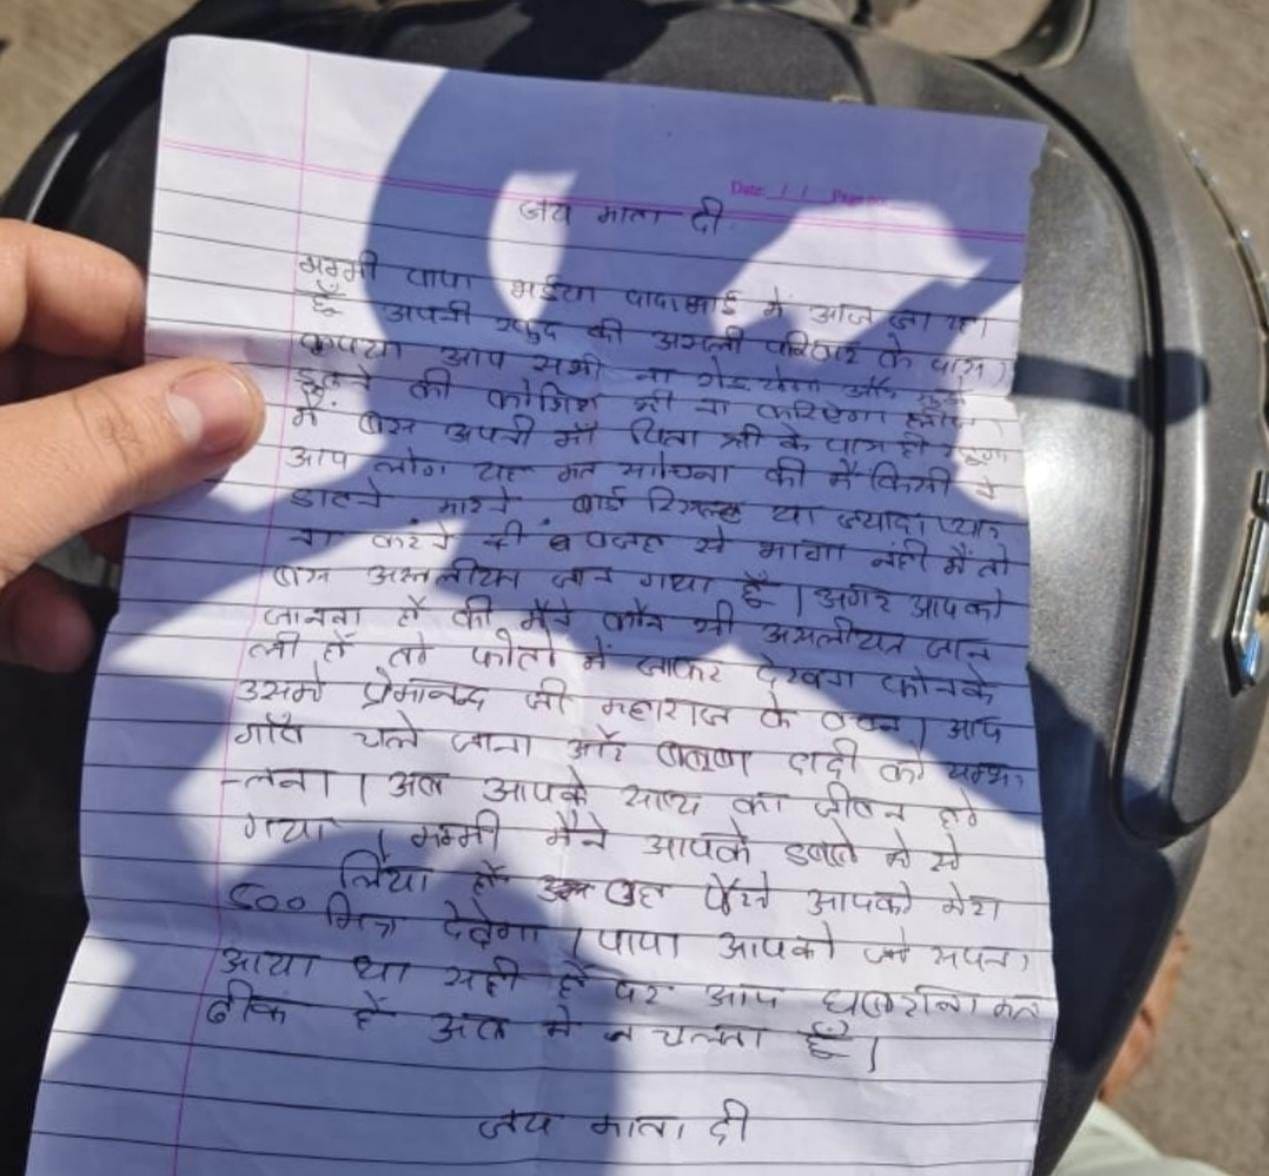 Date: / / Page
जय माता दी
मम्मी पापा भईया में आज जा रहा
हूँ अपनी खुद की असली परिवार के पास।
कृपया आप सभी ना और मुझे
ढूंढने की कोशिश भी ना करिएगा
में बस अपनी माँ पिता श्री के पास ही रहूंगा
आप लोग यह मत सोचना की मैं किसी ने
डाटने मारने बोर्ड या ज्यादा प्यार
ना करने की वजह से भागा नहीं मैं तो
बस असलीयत जान गया हूँ। अगर आपको
जानना हैं की मैने कौन सी असलीयत जान
ली हैं तो फोटो में जाकर देखना फोनके
उसमे प्रेमानन्द जी महाराज के वचन। आप
गाँव चले जाना और दादी को सम्भा
-लना। अब आपके साथ का जीवन हो
गया। मम्मी मैने आपके डब्बे मे से
लिया हैं वह पैसे आपको मेरा
500 मित्र देदेगा। पापा आपको जो सपना
आया था सही हैं पर आप घबराना मत
ठीक हैं अब मे चलता हूँ।
जय माता दी